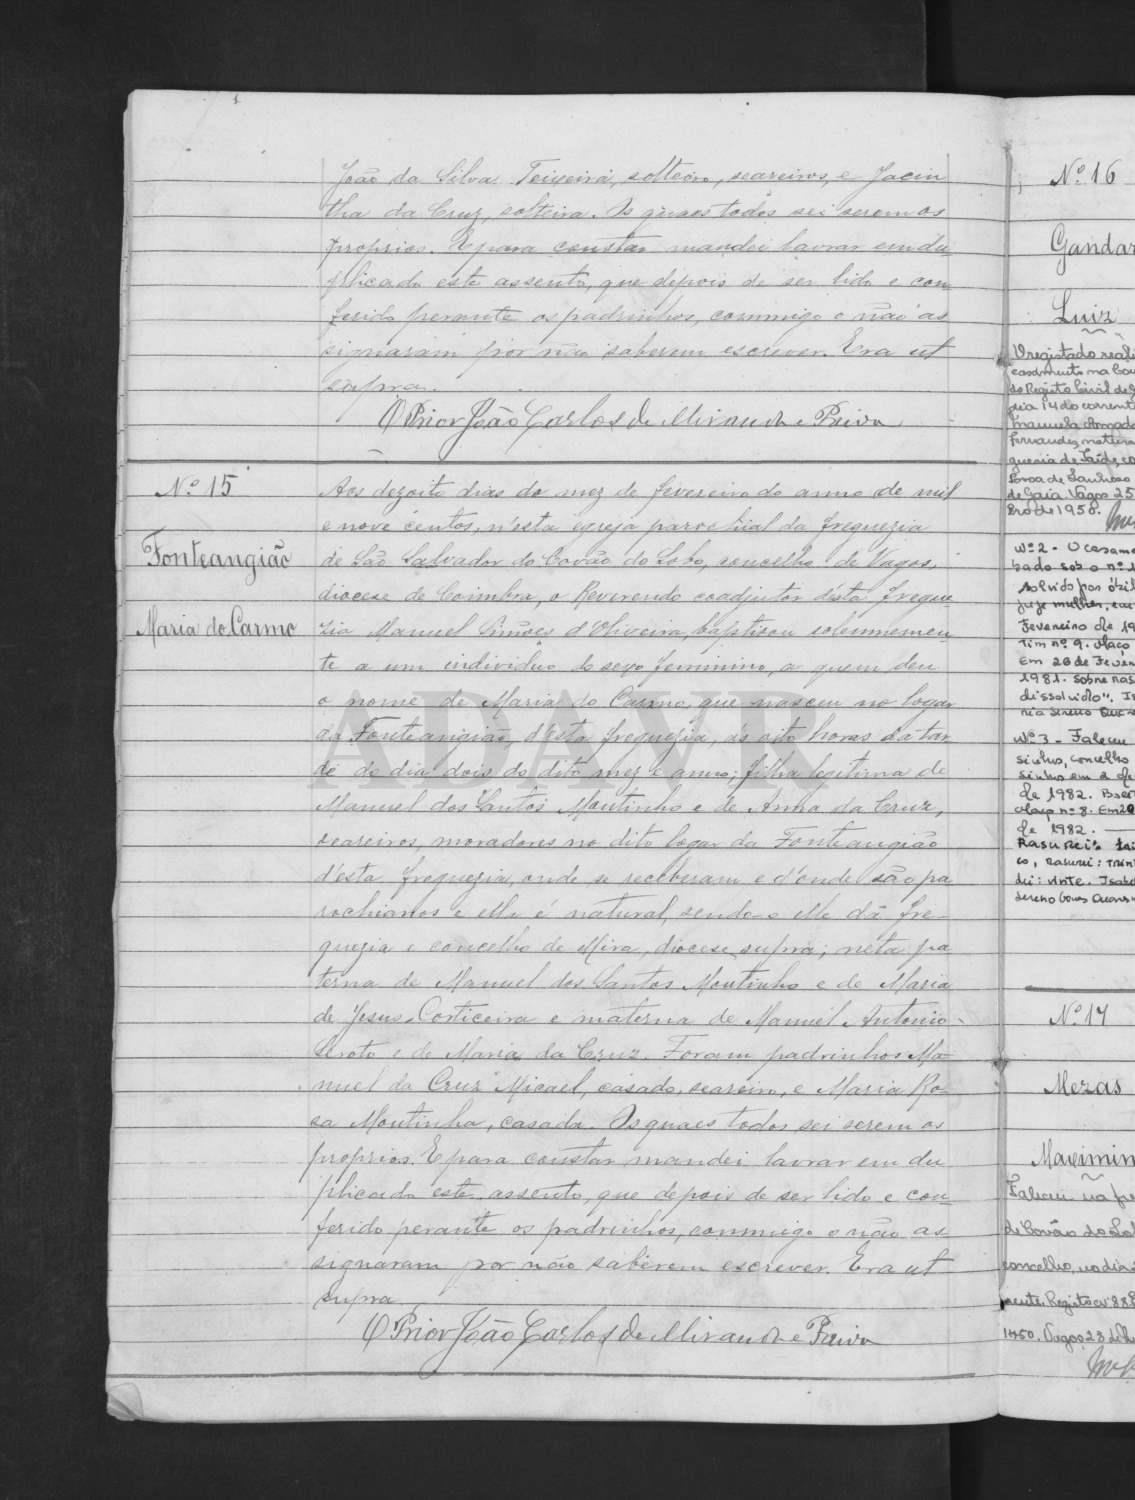 João da Silva Teixeira, solteiro, seareiros, e Jacin
tha da Cruz, solteira. Os quaes todos sei serem os
proprios. E para constar mandei lavrar em du
plicado este assento, que depois de ser lido e con
ferido perante os padrinhos, commigo o não as
signaram por não saberem escrever. Era ut
supra.
O Prior João Carlos de Miranda e Paiva
Nº 15
Fonteangião
Maria do Carmo
Aos dezoito dias do mez de fevereiro do anno de mil
e nove centos, n'esta egreja parochial da freguezia
de São Salvador do Covão do Lobo, concelho de Vagos,
diocese de Coimbra, o Reverendo coadjutor d'esta fregue
zia Manuel Simões d'Oliveira, baptisou solemnemen
te a um individuo do sexo feminino, a quem deu
o nome de Maria do Carmo, que nasceu no logar
da Fonteangião, d'esta freguezia, ás oito horas da tar
de do dia dois do dito mez e anno; filha legitima de
Manuel dos Santos Moutinho e de Anna da Cruz,
seareiros, moradores no dito logar da Fonteangião
d'esta freguezia, onde se receberam e d'onde são pa
rochianos e ella é natural, sendo-o elle da fre
guezia e concelho de Mira, diocese supra; neta pa
terna de Manuel dos Santos Moutinho e de Maria
de Jesus Corticeira e materna de Manuel Antonio
Seroto e de Maria da Cruz. Foram padrinhos Ma
nuel da Cruz Micael, casado, seareiro, e Maria Ro
sa Moutinha, casada. Os quaes todos sei serem os
proprios. E para constar mandei lavrar em du
plicado este assento, que depois de ser lido e con
ferido perante os padrinhos, commigo o não as
signaram por não saberem escrever. Era ut
supra.
O Prior João Carlos de Miranda e Paiva
ADAVR
Nº 16
Gandar
Luiz
O registado reali
casamento na Con
do Registo Civil de
dia 14 do corrente
Manuela
Fernandes, natura
guezia de Taíde, co
Povoa de Lanhoso
de Gaia. Vagos 25
bro de 1958.
Nº 2 - O casame
bado sob o nº 1
solvido por óbi
Fevereiro de 19
tim nº 9. Maço
Em 26 de Fever
1981. Sobre ras
dissolvido". I
Nº 3 - Faleceu
sinhos, concelho
sinhos em 2 de
de 1982. Bolet
Maço nº 8. Em 20
de 1982.
Rasurei:
co, rasurei: trin
dei: vinte. Isabel
Nº 17
Mezas
Maximin
Faleceu na fre
de Covão do Lob
concelho, no dia
cente. Registo nº 88
1450. Vagos 23 de